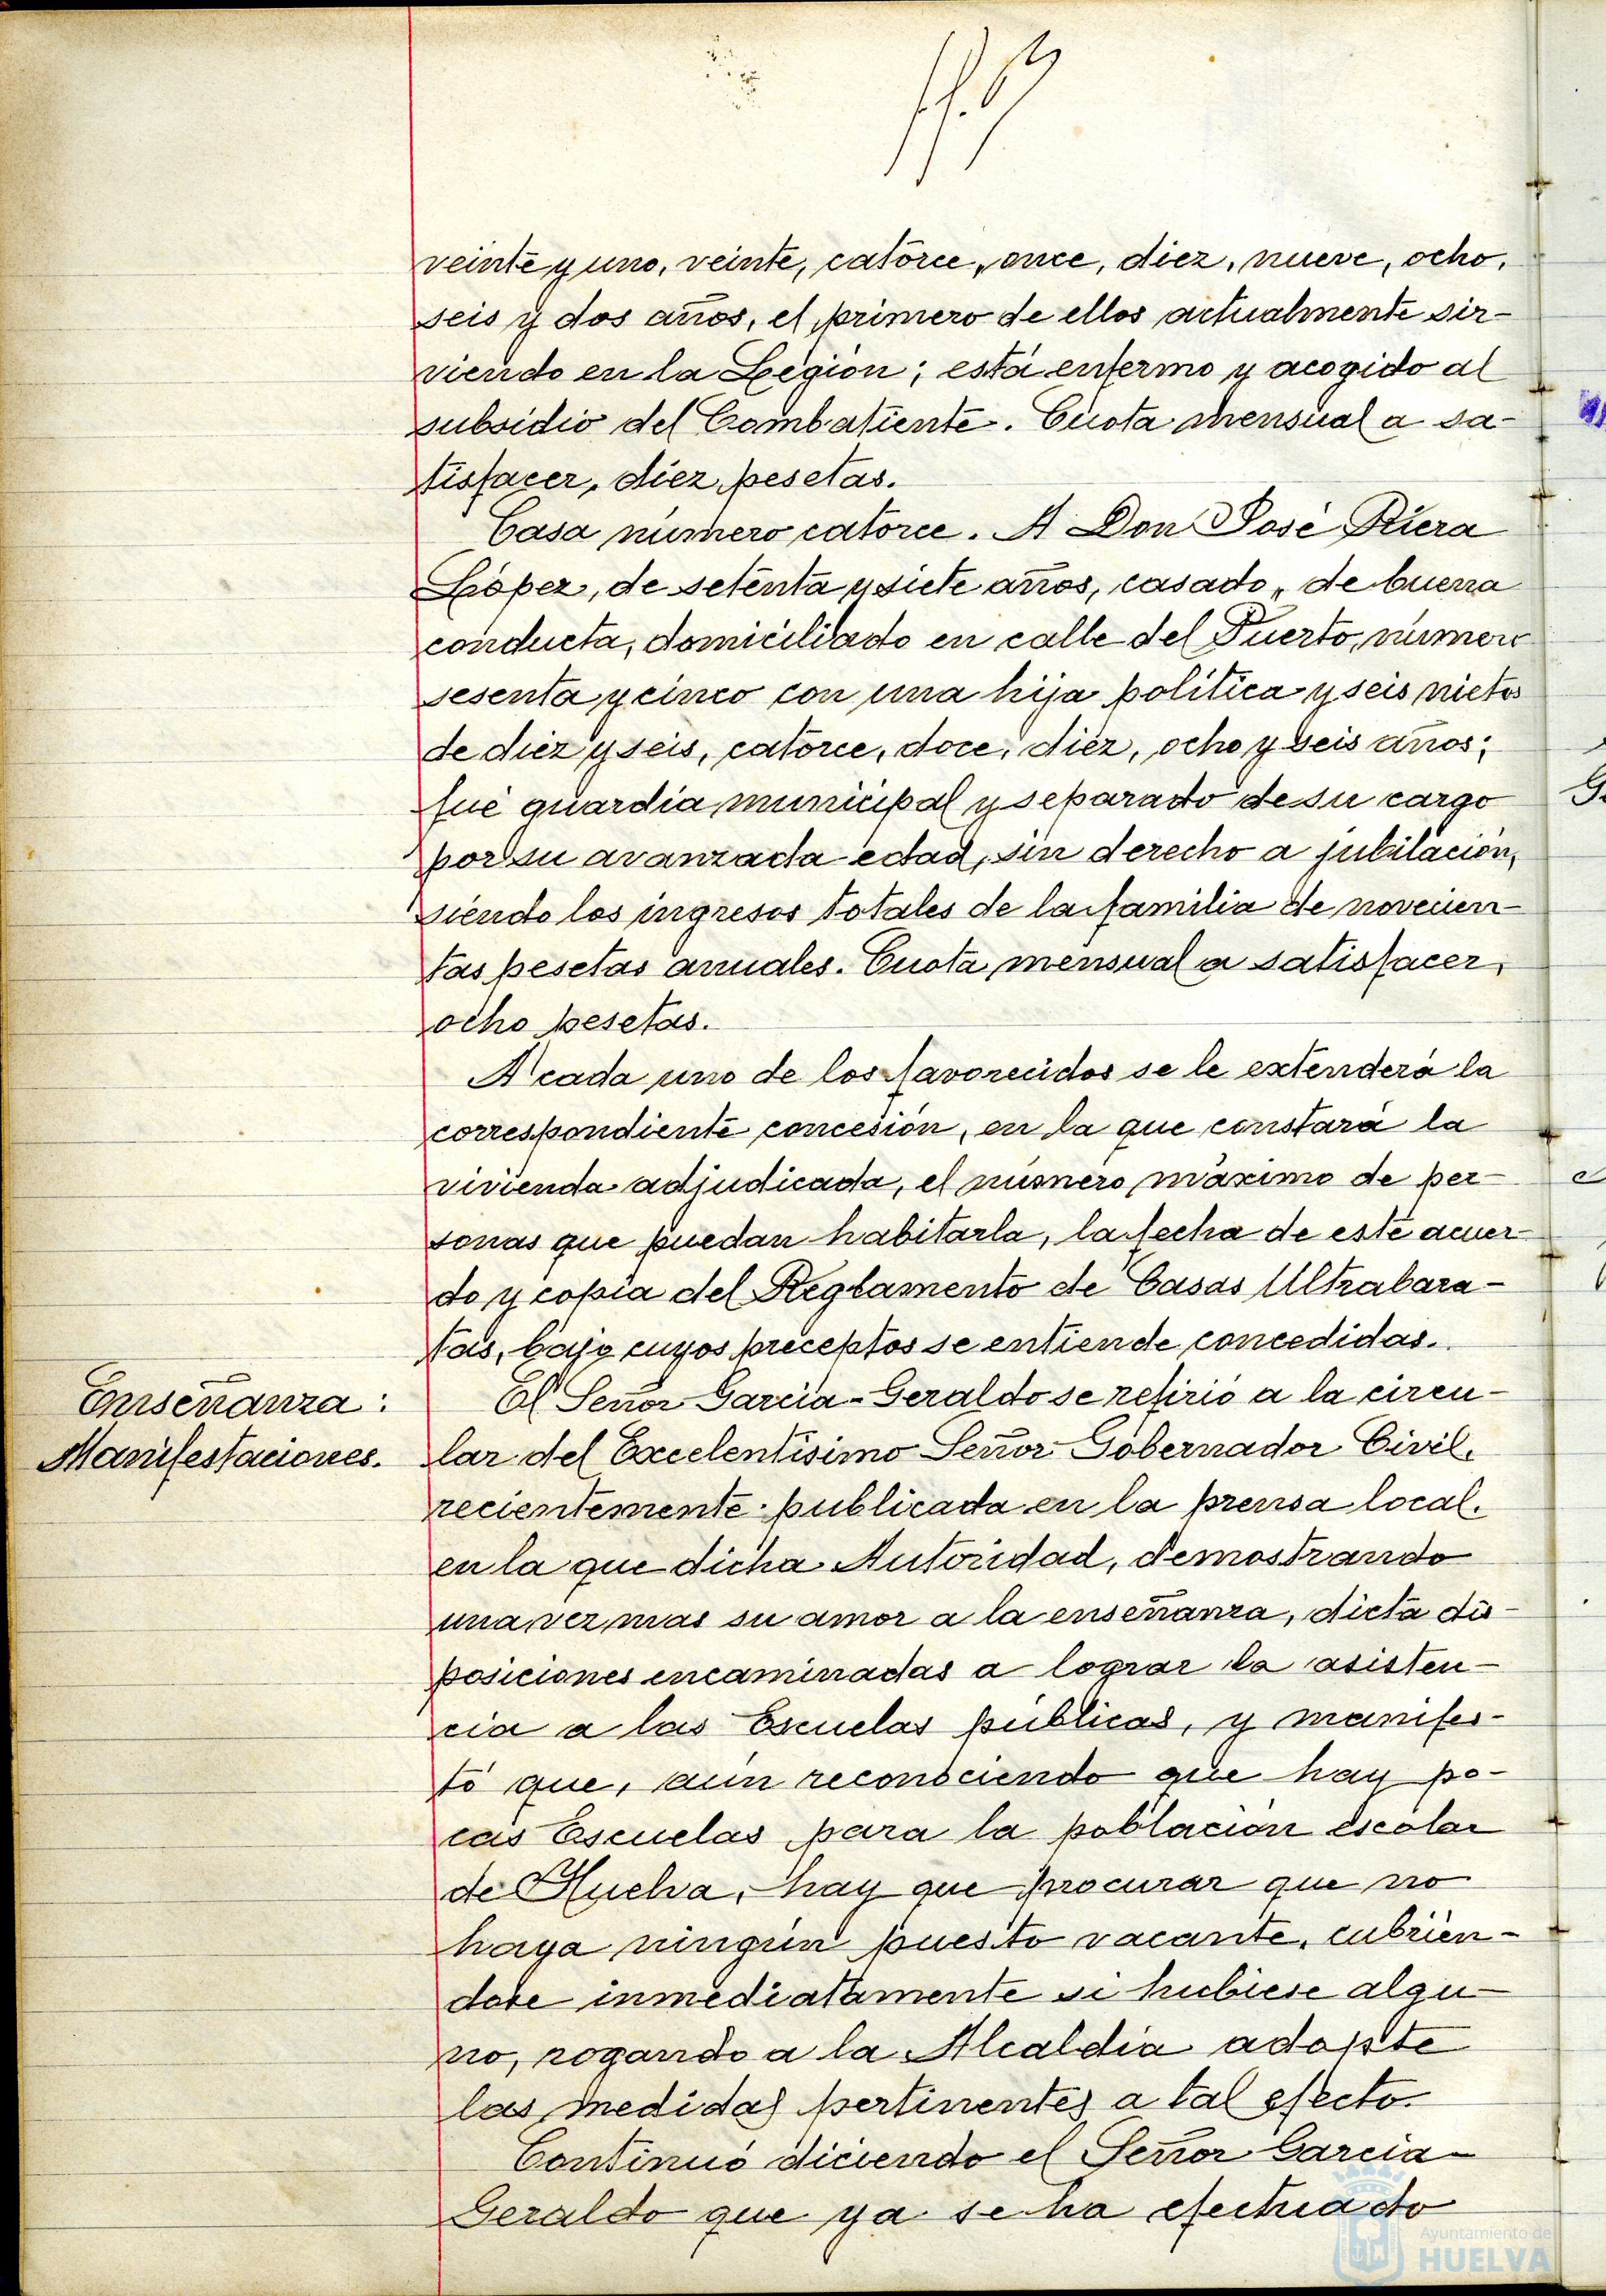 veinte y uno, veinte, catorce, once, diez, nueve, ocho,
seis y dos años, el primero de ellos actualmente sir-
viendo en la Legión; está enfermo y acogido al
subsidio del Combatiente. Cuota mensual a sa-
tisfacer, diez pesetas.
Casa número catorce. A Don José Riera
López, de setenta y siete años, casado, de buena
conducta, domiciliado en calle del Puerto, número
sesenta y cinco con una hija política y seis nietos
de diez y seis, catorce, doce, diez, ocho y seis años;
fué guardia municipal y separado de su cargo
por su avanzada edad, sin derecho a jubilación,
siendo los ingresos totales de la familia de novecien-
tas pesetas anuales. Cuota mensual a satisfacer,
ocho pesetas.
A cada uno de los favorecidos se le extenderá la
correspondiente concesión, en la que constará la
vivienda adjudicada, el número máximo de per-
sonas que puedan habitarla, la fecha de este acuer-
do y copia del Reglamento de Casas Ultrabara-
tas, bajo cuyos preceptos se entiende concedidas.
Enseñanza:
Manifestaciones.
El Señor García-Geraldo se refirió a la circu-
lar del Excelentísimo Señor Gobernador Civil,
recientemente publicada en la prensa local,
en la que dicha Autoridad, demostrando
una vez mas su amor a la enseñanza, dicta dis-
posiciones encaminadas a lograr la asisten-
cia a las Escuelas públicas, y manifes-
tó que, aún reconociendo que hay po-
cas Escuelas para la población escolar
de Huelva, hay que procurar que no
haya ningún puesto vacante, cubrien-
dose inmediatamente si hubiese algu-
no, rogando a la Alcaldía adopte
las medidas pertinentes a tal efecto.
Continuó diciendo el Señor García-
Geraldo que ya se ha efectuado
Ayuntamiento de
HUELVA